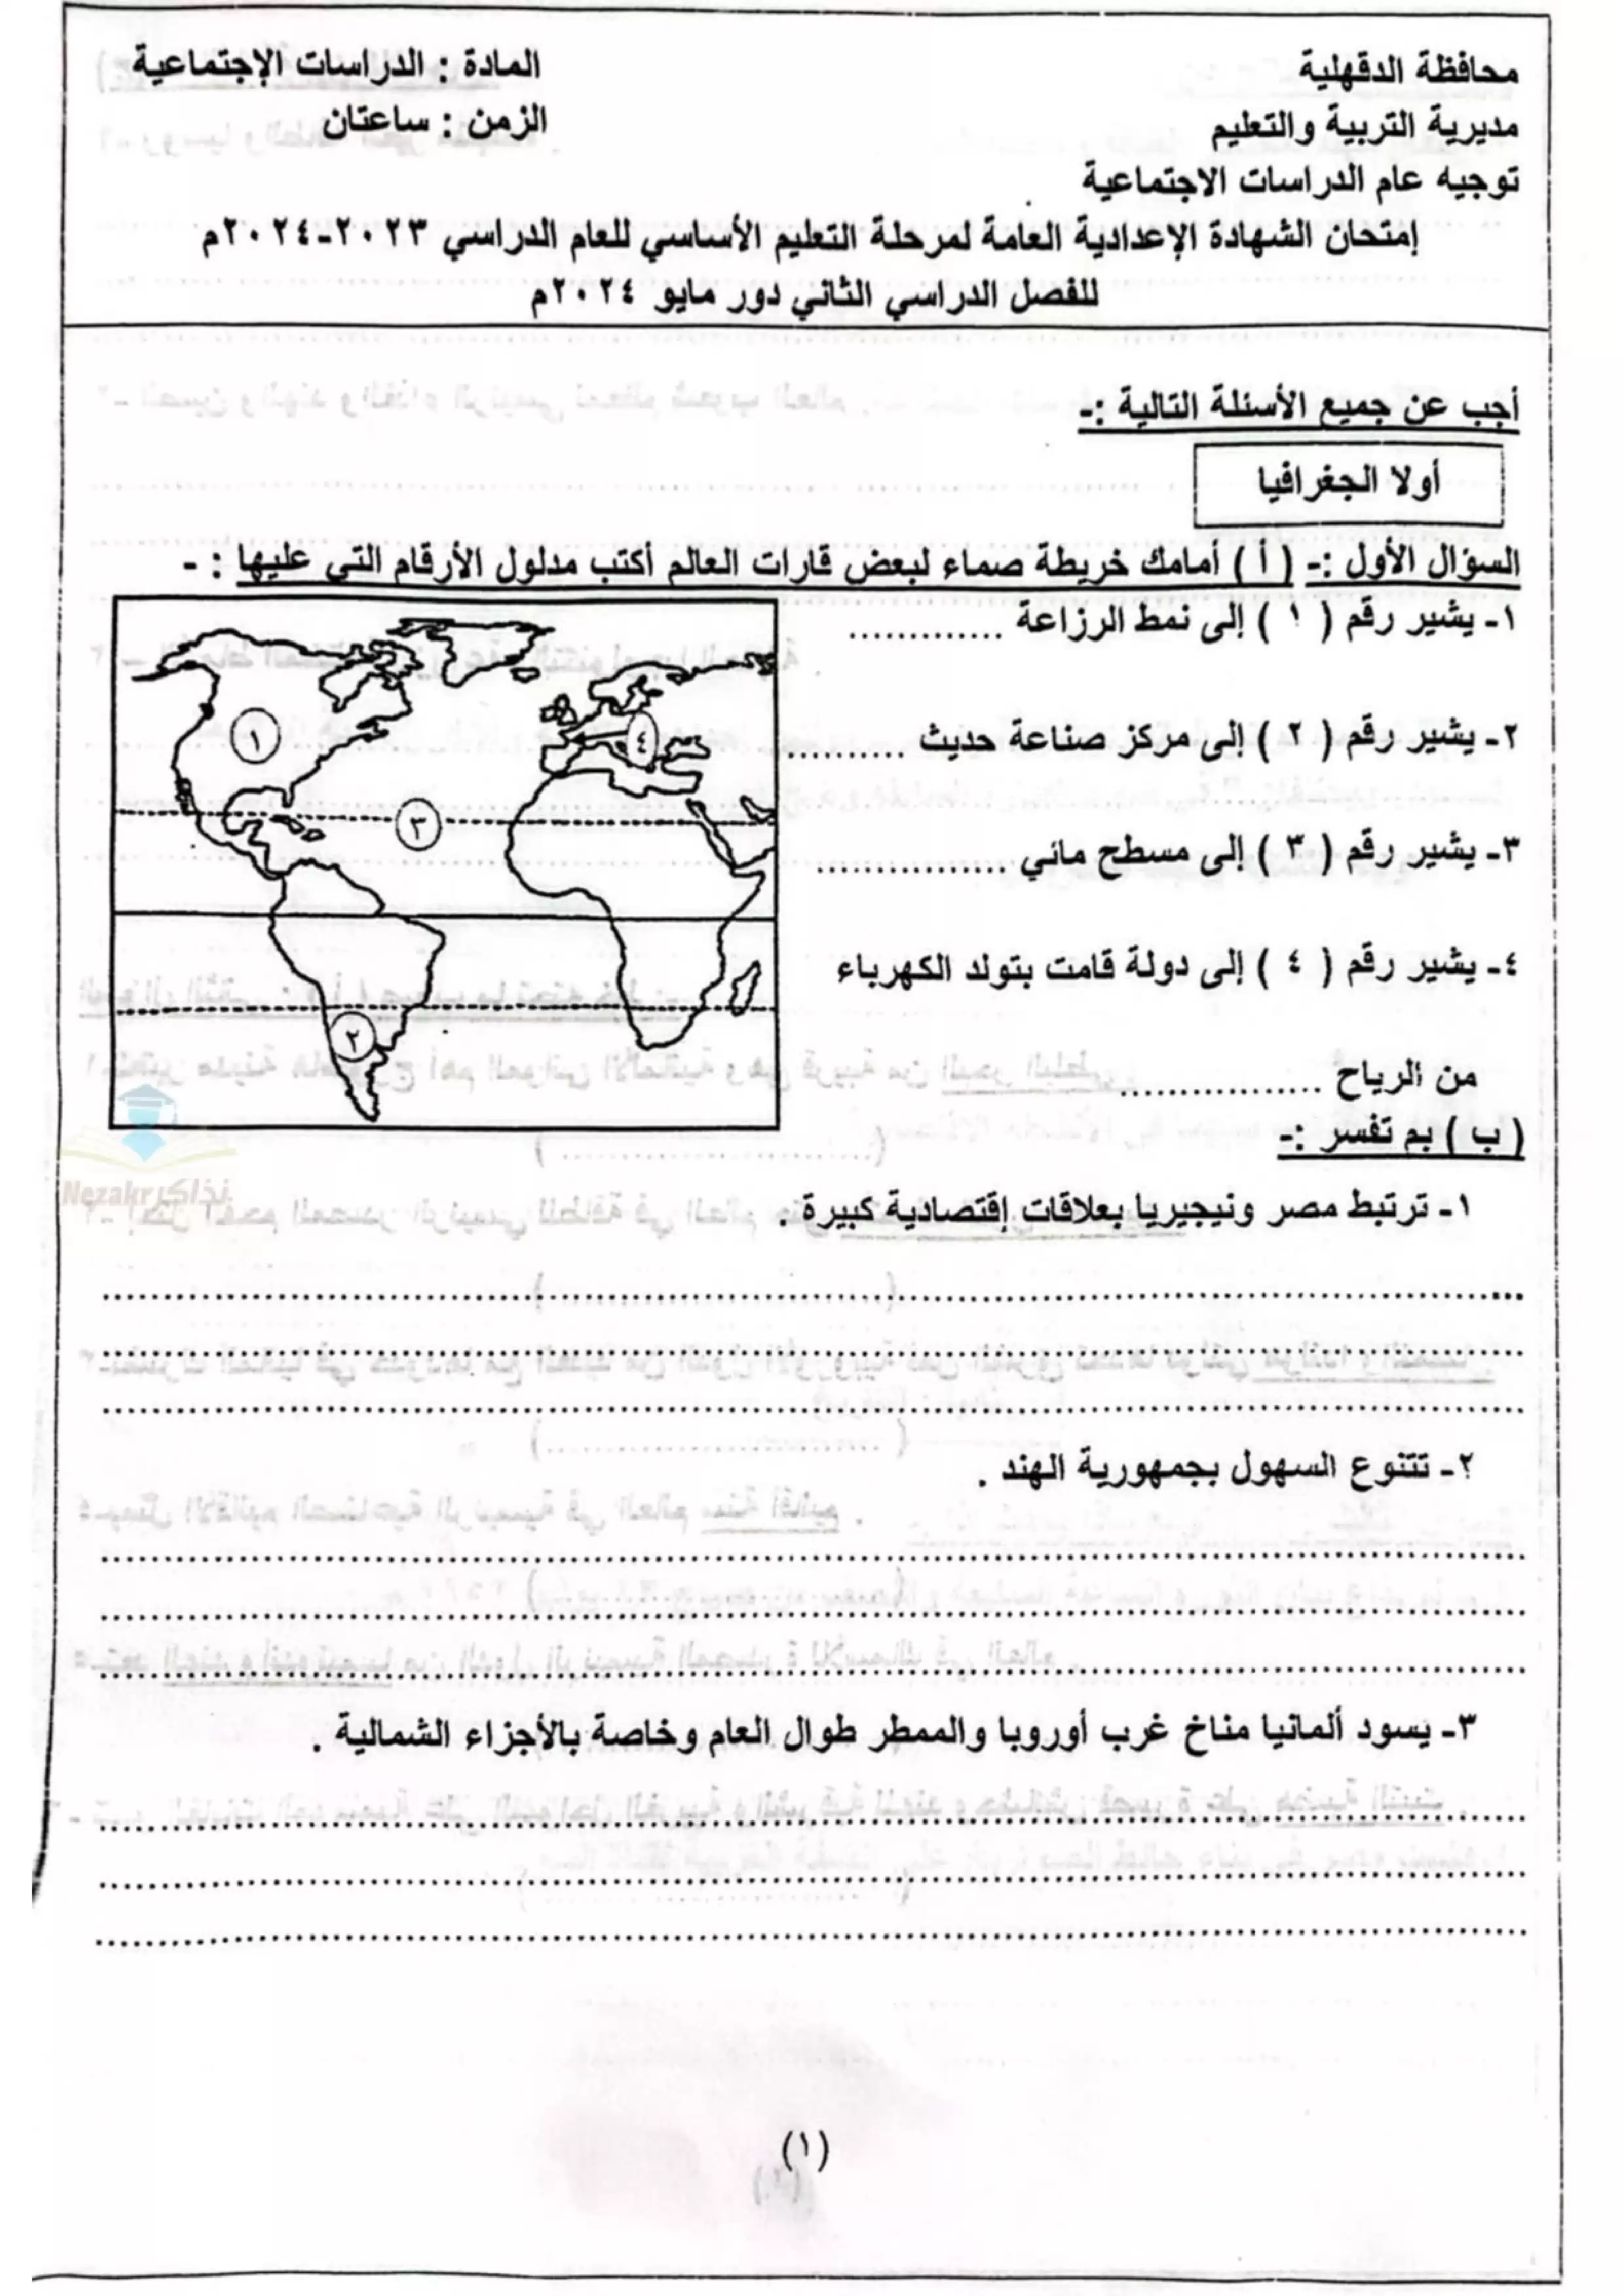 محافظة الدقهلية
المادة : الدراسات الإجتماعية
مديرية التربية والتعليم
الزمن : ساعتان
توجيه عام الدراسات الاجتماعية
إمتحان الشهادة الإعدادية العامة لمرحلة التعليم الأساسي للعام الدراسي ٢٠٢٣-٢٠٢٤م
للفصل الدراسي الثاني دور مايو ٢٠٢٤م
أجب عن جميع الأسئلة التالية :-
أولا الجغرافيا
السؤال الأول :- ( أ ) أمامك خريطة صماء لبعض قارات العالم أكتب مدلول الأرقام التي عليها : -
١- يشير رقم ( ١ ) إلى نمط الرزاعة .............
٢- يشير رقم ( ٢ ) إلى مركز صناعة حديث ..........
٣- يشير رقم ( ٣ ) إلى مسطح مائي ................
٤- يشير رقم ( ٤ ) إلى دولة قامت بتولد الكهرباء
من الرياح .................
١
٤
٣
٢
( ب ) بم تفسر :-
Nezakr نذاكر
١- ترتبط مصر ونيجيريا بعلاقات إقتصادية كبيرة .
٢- تتنوع السهول بجمهورية الهند .
٣- يسود ألمانيا مناخ غرب أوروبا والممطر طوال العام وخاصة بالأجزاء الشمالية .
(١)